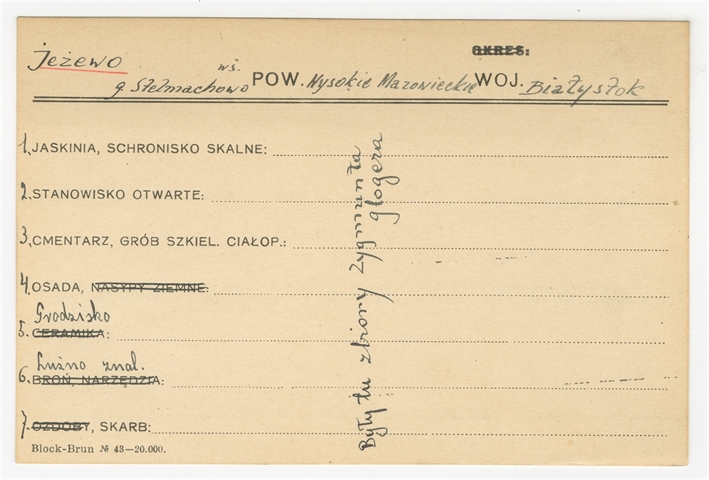 OKRES:
Jeżewo wś.
g. Stelmachowo POW. Wysokie Mazowieckie WOJ. Białystok
1. JASKINIA, SCHRONISKO SKALNE:
2. STANOWISKO OTWARTE:
3. CMENTARZ, GRÓB SZKIEL. CIAŁOP.:
4. OSADA, NASYPY ZIEMNE:
Grodzisko
5. CERAMIKA:
Luźno znal.
6. BROŃ, NARZĘDZIA:
7. OZDOBY, SKARB:
Block-Brun № 43—20.000.
Były tu zbiory Zygmunta
Glogera